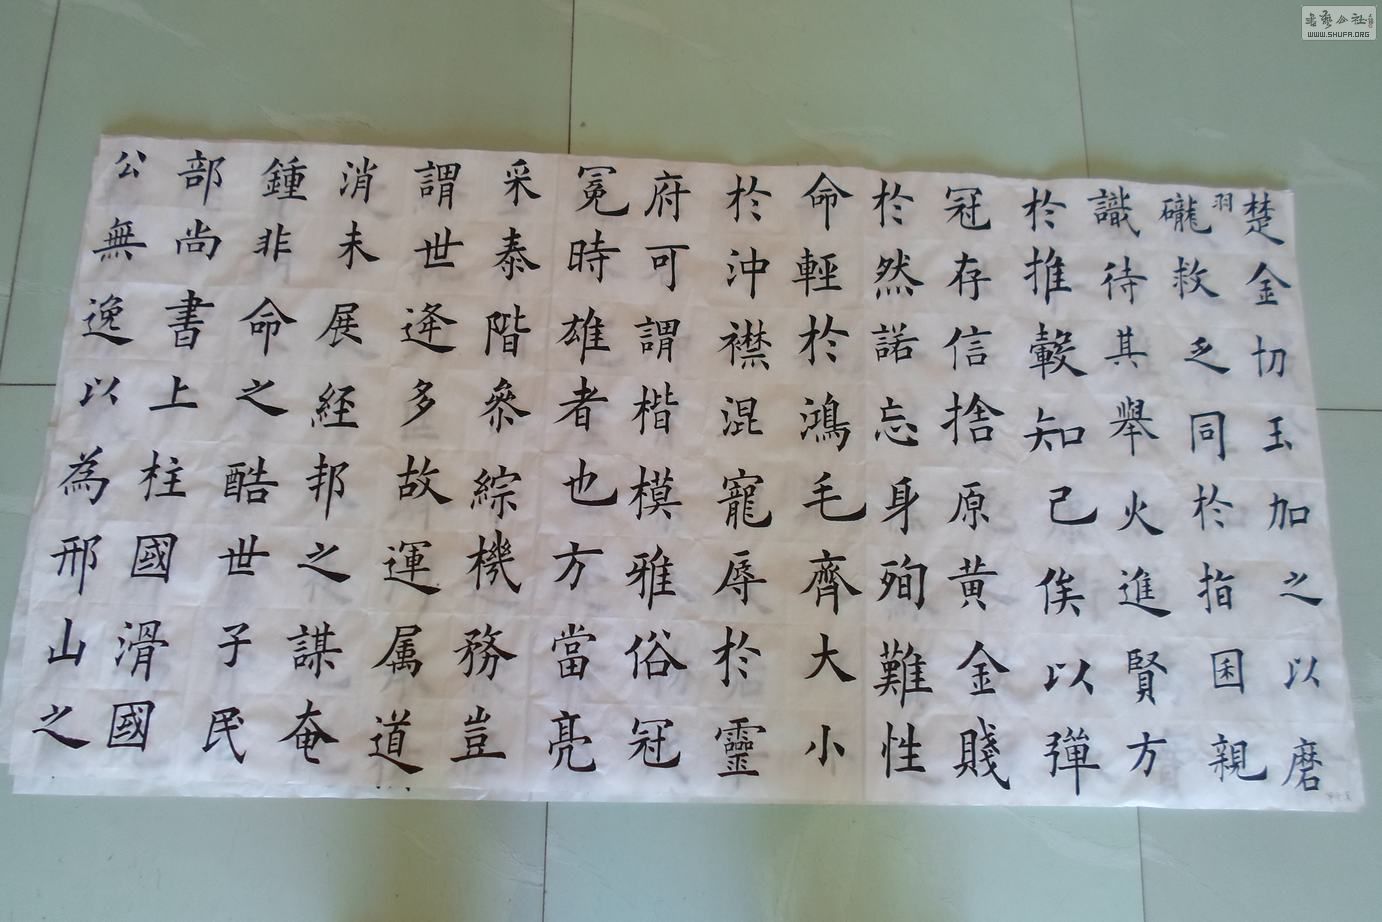 楚金切玉加之以磨
礲羽救乏同於指困親
識待其舉火進賢方
於推轂知己俟以彈
冠存信捨原黃金賤
於然諾忘身殉難性
命輕於鴻毛齊大小
於沖襟混寵辱於靈
府可謂楷模雅俗冠
冕時雄者也方當亮
采泰階叅綜機務豈
謂世逄多故運属道
消未展經邦之謀奄
鍾非命之酷世子民
部尚書上柱國滑國
公無逸以為邢山之
書藝公社
WWW.SHUFA.ORG